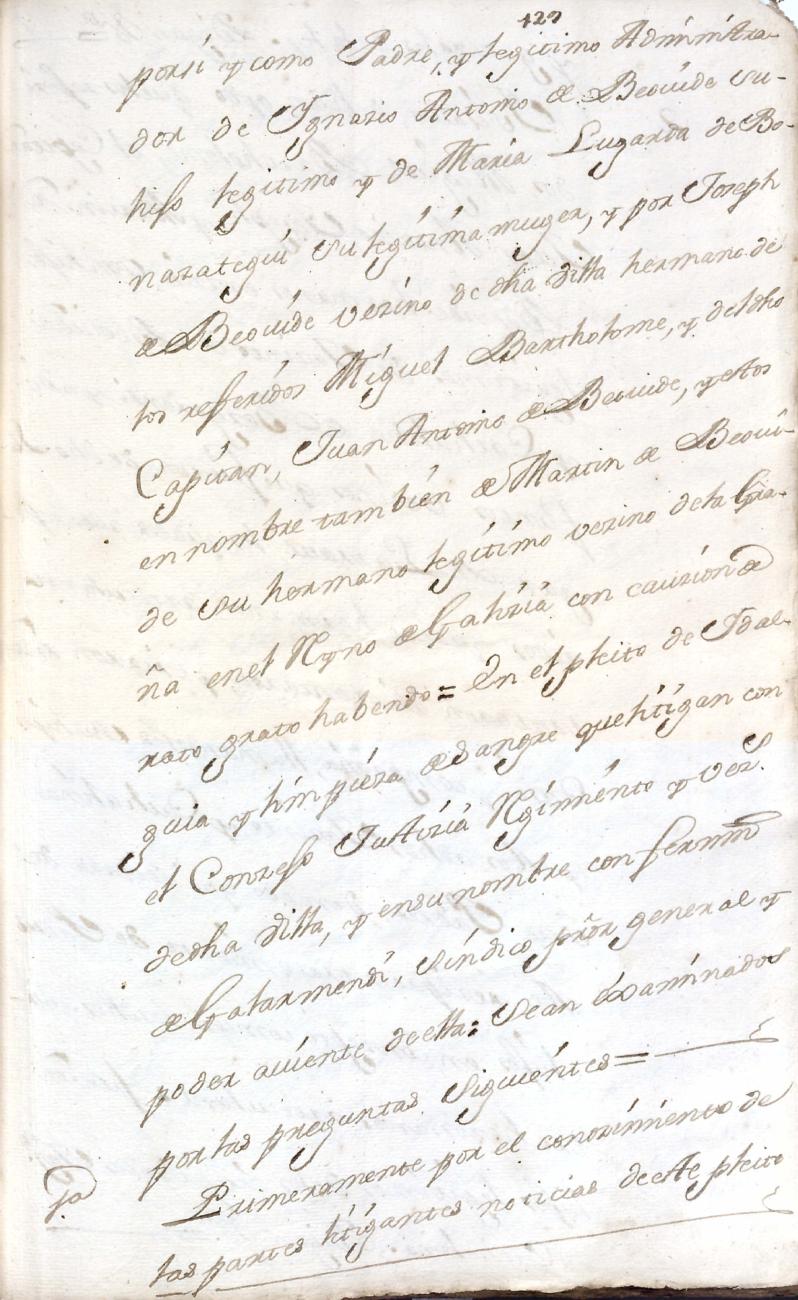 127
por sí y como Padre, y legitimo Administra-
dor de Ygnazio Antonio de Beovide su-
hijo legitimo y de Maria Lugarda de Bo-
narategui su legitima muger, y por Joseph
de Beovide vezino de dha villa hermano de
los refferidos Miguel Bartholome, y del dho
Capitan, Juan Antonio de Beovide, y estos
en nombre tambien de Martin de Beovi-
de su hermano legitimo vezino de la Gra-
ña en el Rno de Galizia con caucion de
rato grato habendo = En el pleito de Idal-
guia y limpieza de sangre que litigan con
el Conzejo Justizia Regimiento y vezs.
de dha villa, y en su nombre con fermin
de Galarmendi, sindico prõr general y
poder aviente de ella: Sean examinados
por las preguntas siguientes =
1a Primeramente por el conozimiento de
las partes litigantes noticias de este pleito